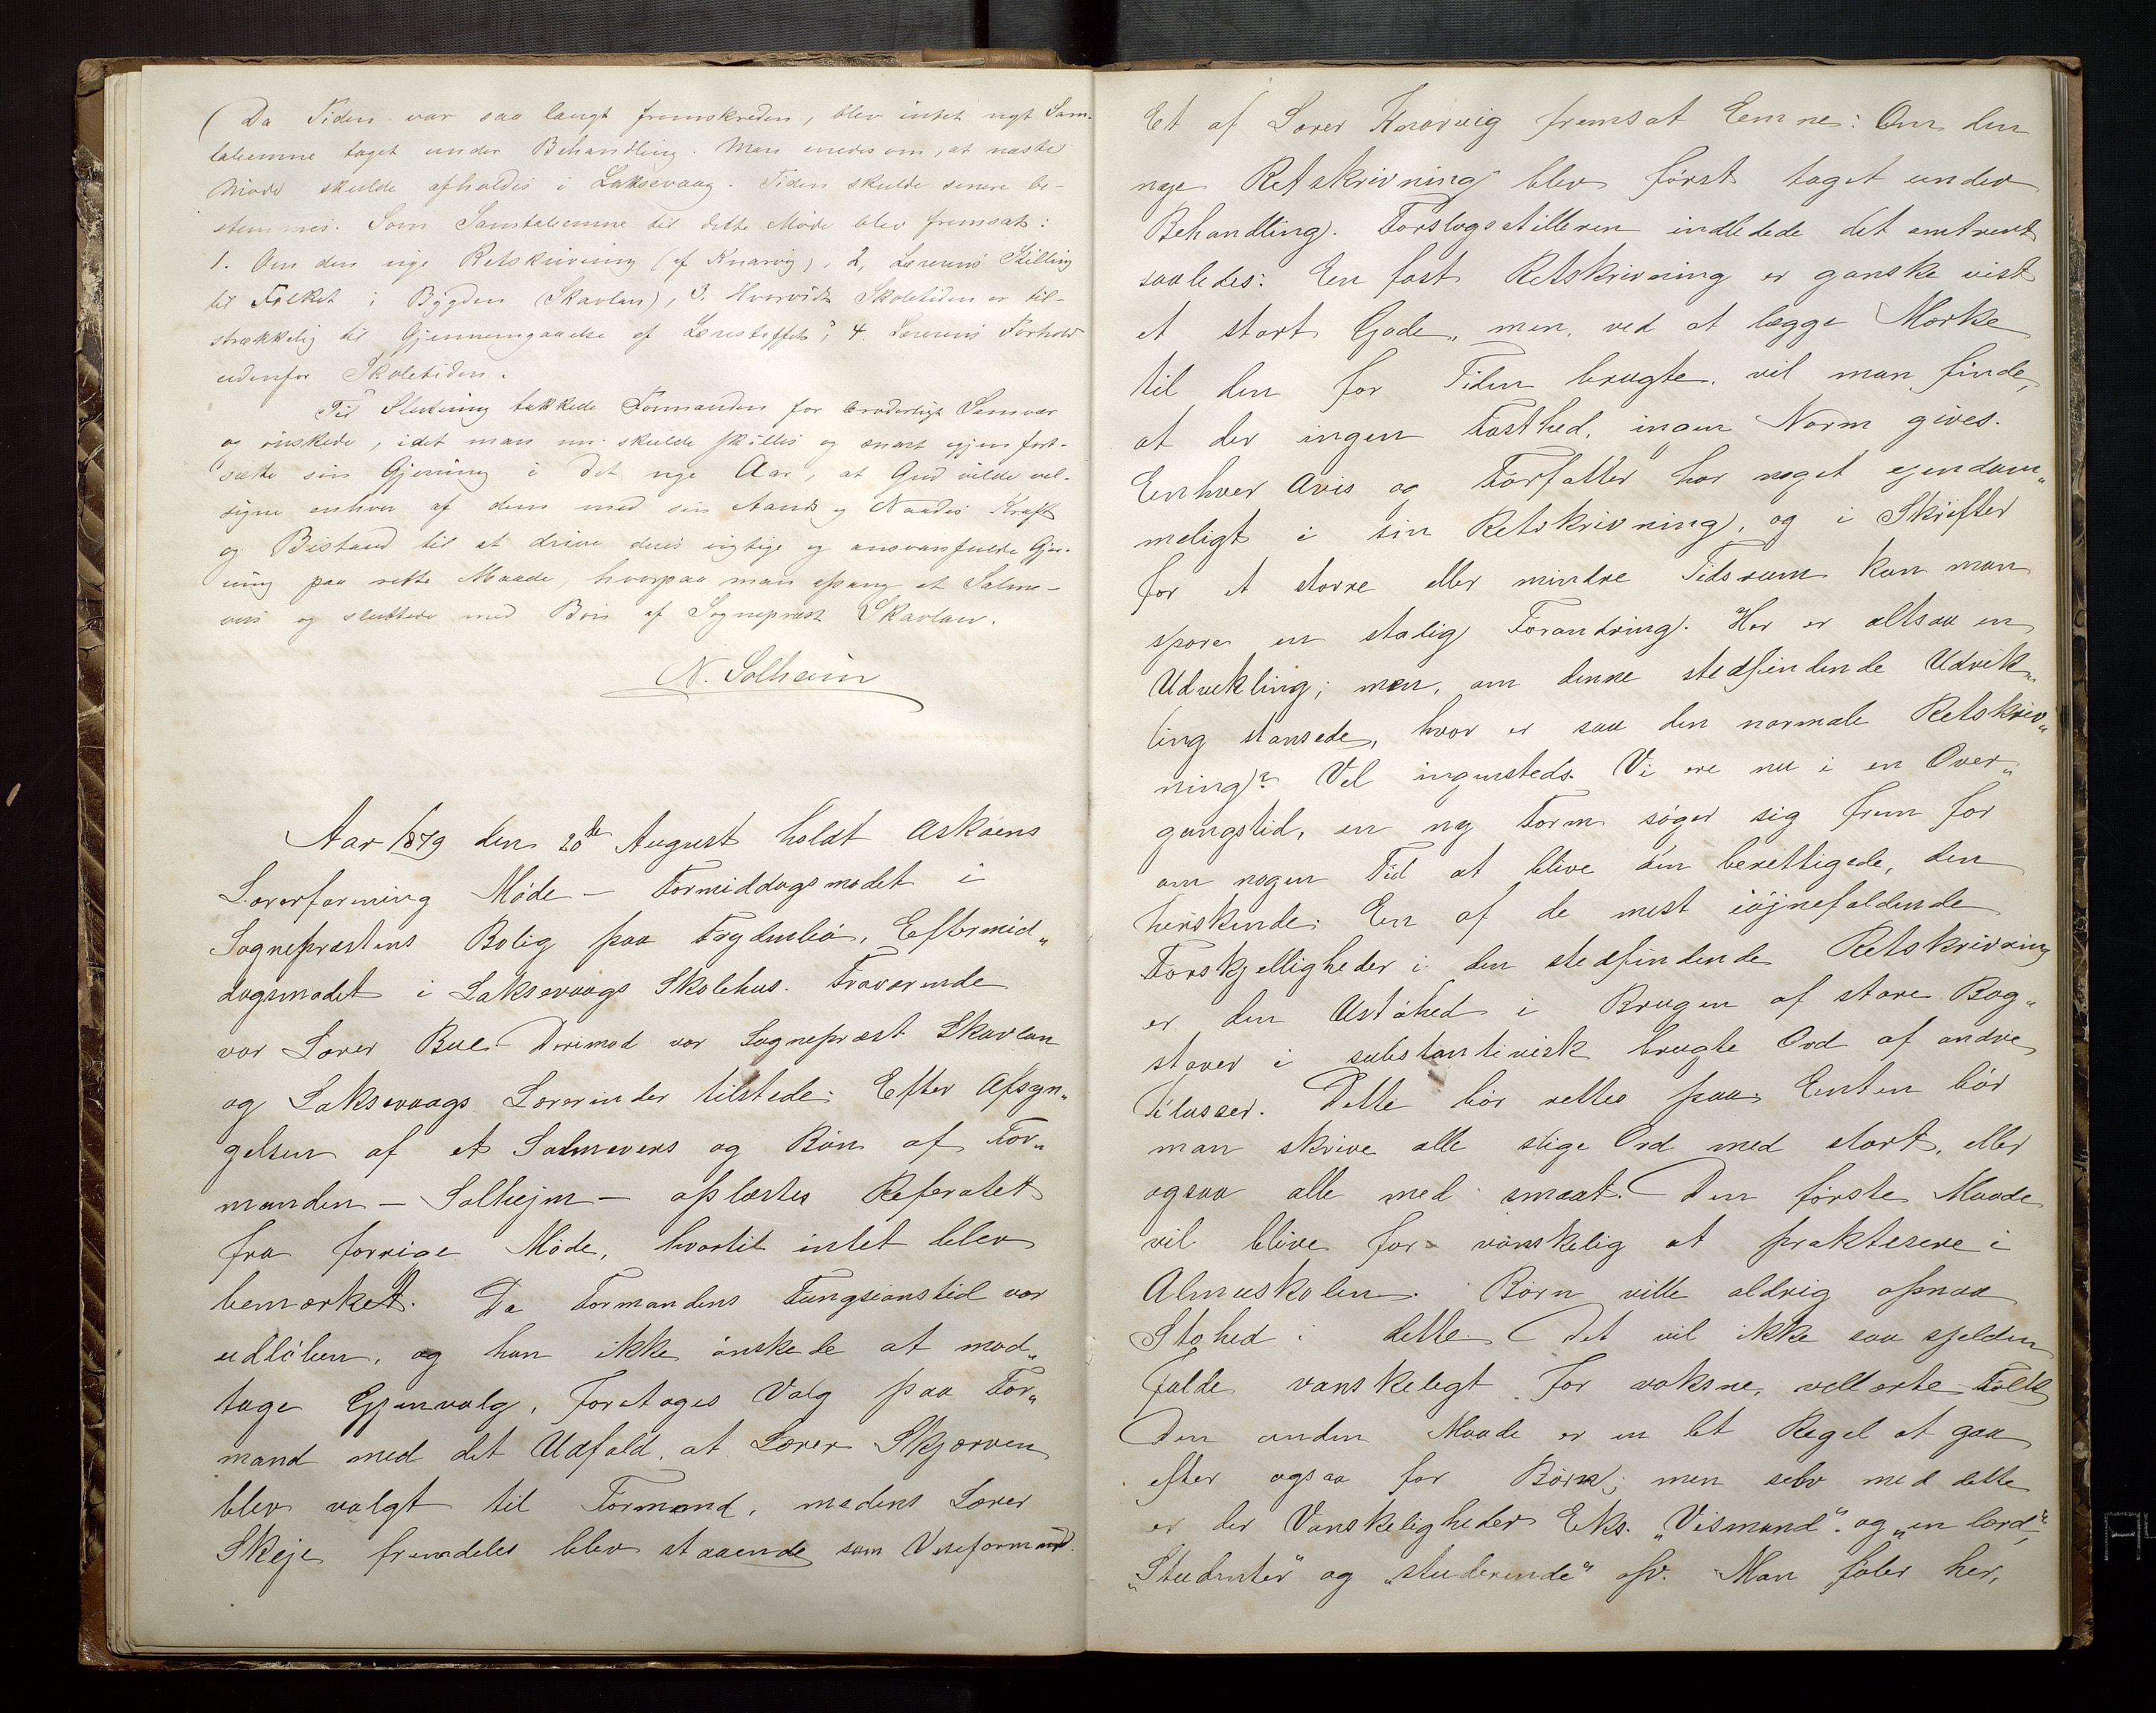 Da Tiden var saa langt fremskreden, blev intet nyt Sam-
taleemne taget under Behandling. Man enedes om, at næste
Møde skulde afholdes i Laksevaag. Tiden skulde senere be-
stemmes. Som Samtaleemne til dette Møde blev fremsat:
1. Om den nye Retskrivning (af Knarvig), 2, Lærerens Stilling
til Folket i Bygden (Skavlan), 3. Hvorvidt Skoletiden er til-
strækkelig til Gjennemgaaelse af Lærestoffet, 4. Lærerens Forhold
udenfor Skoletiden.
Til Slutning takkede Formanden for broderligt Samvær
og ønskede, idet man nu skulde skilles og snart igjen fort-
sætte sin Gjerning i det nye Aar, at Gud vilde vel-
signe enhver af dem med sin Aands og Naades Kraft
og Bistand til at drive deres vigtige og ansvarsfulde Gjer-
ning paa rette Maade, hvorpaa man afsang et Salme-
vers og sluttede med Bøn af Sogneprest Skavlan.
N. Solheim
Aar 1879 den 20de August holdt Askøens
Lærerforening Møde – Formiddagsmødet i
Sogneprestens Bolig paa Frydenbø, Eftermid„
dagsmødet i Laksevaags Skolehus. Fraværende
var Lærer Bue. Derimod var Sogneprest Skavlan
og Laksevaags Lærerinder tilstede. Efter Afsyn„
gelsen af et Salmevers og Bøn af For„
manden – Solhejm – oplæstes Referatet
fra forrige Møde, hvortil intet blev
bemærket. Da Formandens Fungsionstid var
udløben, og han ikke ønskede at mod„
tage Gjenvalg, foretoges Valg paa For„
mand med det Udfald, at Lærer Skjerven
blev valgt til Formand, medens Lærer
Skeje fremdeles blev staaende som Viseformand.
Et af Lærer Knarvig fremsat Eemne: Om den
nye Retskrivning blev først taget under
Behandling. Forslagsstilleren indledede det omtrent
saaledes: En fast Retskrivning er ganske vist
et stort Gode, men, ved at lægge Mærke
til den for Tiden brugte, vil man finde,
at der ingen Fasthed, ingen Norm gives.
Enhver Avis og Forfatter har noget ejendom„
meligt i sin Retskrivning, og i Skrifter
for et større eller mindre Tidsrum kan man
spore en stadig Forandring. Her er altsaa en
Udvikling; men, om denne stedfindende Udvik„
ling stansede, hvor er saa den normale Retskriv„
ning? Vel ingensteds. Vi ere nu i en Over„
gangstid, en ny Form søger sig frem for
om nogen Tid at blive den berettigede, den
herskende. En af de mest iøjnefaldende
Forskjelligheder i den stedfindende Retskrivning
er den Ustøhed i Brugen af store Bog„
staver i substantivisk brugte Ord af andre
Klasser. Dette bør rettes paa. Enten bør
man skrive alle slige Ord med stort, eller
ogsaa alle med smaat. Den første Maade
vil blive for vanskelig at praktisere i
Almuskolen. Børn ville aldrig opnaa
Støhed i dette. Det vil ikke saa sjelden
falde vanskeligt for voksne, vellærte Folk
Den anden Maade er en let Regel at gaa
efter ogsaa for Børn; men selv med dette
er der Vanskeligheder Eks. „Vismand“ og „en lærd“,
„Studenter“ og „studerende“ osv. Man føler her,